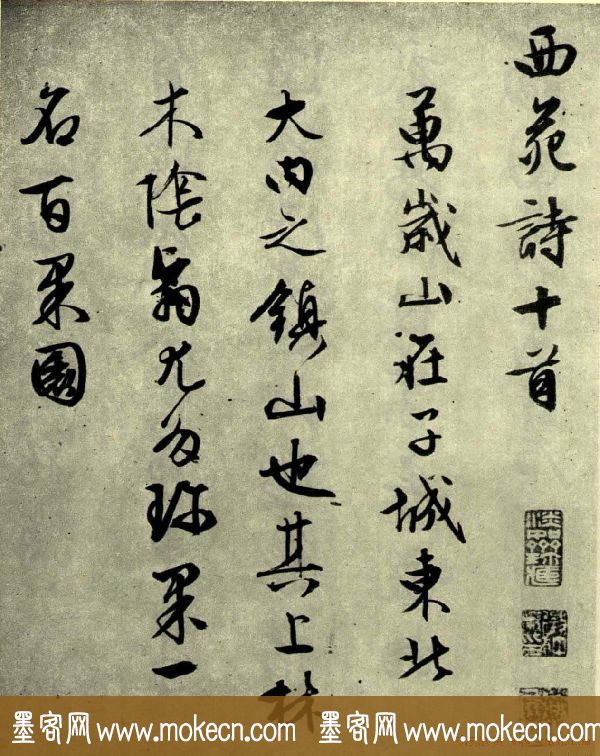 西苑詩十首
萬歲山在子城東北
大內之鎮山也其上林
木陰翳尤多珍果一
名百果園
墨客网 www.mokecn.com 墨客网 www.mokecn.com